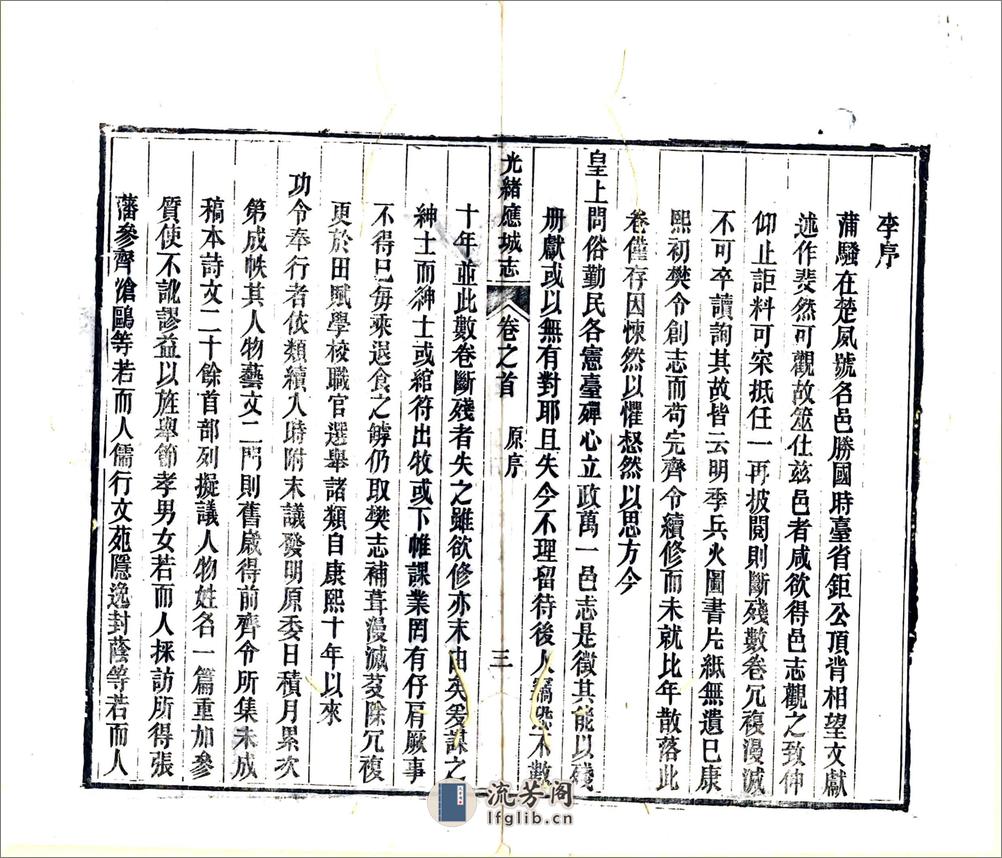 李序
蒲騷在楚夙號名邑勝國時臺省鉅公項背相望文獻
述作斐然可觀故筮仕兹邑者咸欲得邑志觀之致仲
仰止詎料可宋抵任一再披閲則斷殘數卷冗複漫滅
不可卒讀詢其故皆云明季兵火圖書片紙無遺巳康
熙初樊令創志而苟完齊令續修而未就比年散落此
卷僅存因悚然以懼惄然以思方今
皇上問俗勤民各憲臺殫心立政萬一邑志是徵其能以殘
册獻或以無有對耶且失今不理留待後人竊恐不數
光緒應城志 卷之首 原序 三
十年並此數卷斷殘者失之雖欲修亦末由矣爰謀之
紳士而紳士或綰符出牧或下帷課業罔有仔肩厥事
不得巳毎乘退食之罅仍取樊志補葺漫滅芟除冗複
更於田賦學校職官選舉諸類自康熙十年以來
功令奉行者依類續入時附末議發明原委日積月累次
第成帙其人物藝文二門則舊歲得前齊令所集未成
稿本詩文二十餘首部列擬議人物姓名一篇重加參
質使不訛謬益以旌舉節孝男女若而人採訪所得張
藩參齊滄鷗等若而人儒行文苑隱逸封蔭等若而人
一流芳阁
lfglib.cn